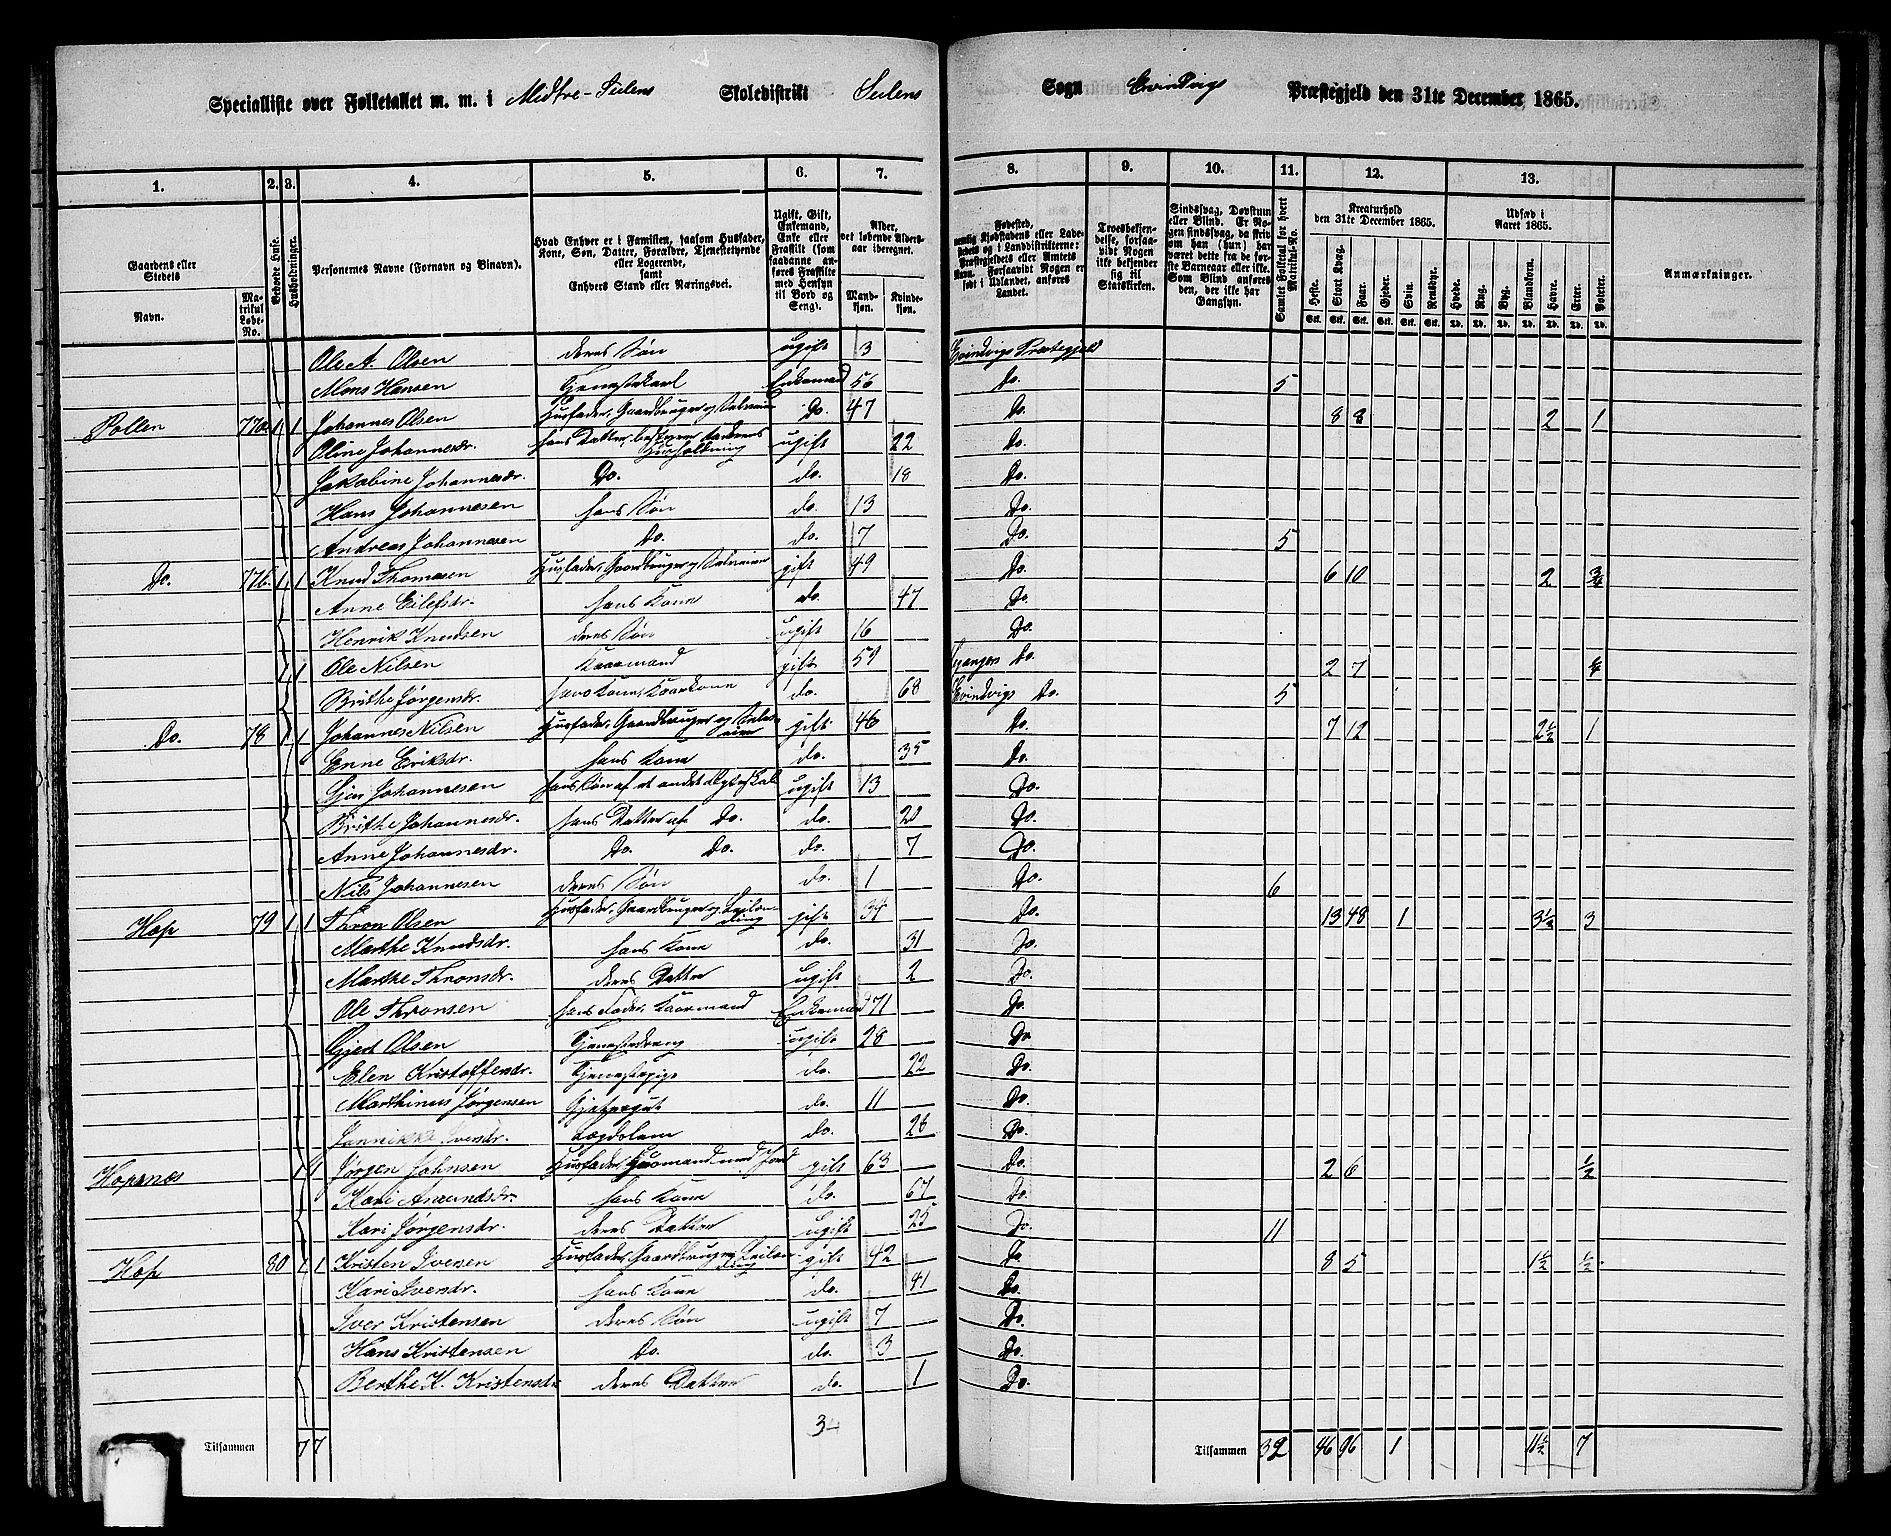 Specialliste over Folketallet m. m. i Midtre-Eilens Skoledistrikt Eilens Sogn Evindvigs Præstegjeld den 31te December 1865.
1. 2. 3. 4. 5. 6. 7. 8. 9. 10. 11. 12. 13.
Gaardens eller Stedets Navn. Matrikul Løbe-No. Bebode Huse. Husholdninger. Personernes Navne (Fornavn og Binavn). Hvad Enhver er i Familien, saasom Husfader, Kone, Søn, Datter, Forældre, Tjenestetyende eller Logerende, samt Enhvers Stand eller Næringsvei. Ugift, Gift, Enkemand, Enke eller Fraskilt (saadanne anføres Fraskilte med Hensyn til Bord og Seng). Alder, det løbende Aldersaar iberegnet. Mandkjøn. Kvindekjøn.
Fødested, Troesbekjendelse, forsaavidt Nogen ikke bekjender sig til Statskirken. Sindssvag, Døvstum eller Blind. Samlet Folketal for hvert Matrikul-No. Kreaturhold den 31te December 1865. Udsæd i Aaret 1865. Anmærkninger.
Heste. Stort Kvæg. Faar. Gjeder. Svin. Rensdyr. Hvede. Rug. Byg. Blandkorn. Havre. Erter. Poteter.
Ole A. Olsen deres Søn ugift 3 Evindvigs Præstegjeld
Mons Hansen Tjenestekarl Enkemand 56 Do. 5
Pollen 77a 1 1 Johannes Olsen Husfader, Gaardbruger og Selveier Do. 47 Do. 8 8 2 1
Oline Johannesdr. hans Datter, bestyrer Faderens Husholdning ugift 22 Do.
Jakobine Johannesdr. Do. do. 18 Do.
Hans Johannesen hans Søn do. 13 Do.
Andreas Johannesen Do. do. 7 Do. 5
Do. 77b. 1 1 Knud Thomasen Husfader, Gaardbruger og Selveier gift 49 Do. 6 10 2 3/4
Anne Eilefsdr. hans Kone do. 47 Do.
Henrik Knudsen deres Søn ugift 16 Do.
1 1 Ole Nilsen Kaarmand gift 59 Do. 2 7
Brithe Jørgensdr. hans Kone, Kaarkone do. 68 Evindvigs Do. 5
Do. 78 1 1 Johannes Nilsen Husfader, Gaardbruger og Selveier gift 46 Do. 7 12 2 1/2 1
Enne Eriksdr. hans Kone do. 35 Do.
Johannesen hans Søn af et andet Ægteskab ugift 13 Do.
Brithe Johannesdr. hans Datter af Do. do. 20 Do.
Anne Johannesdr. Do. Do. do. 7 Do.
Nils Johannesen deres Søn do. 1 Do. 6
Hop 79 1 1 Thron Olsen Husfader, Gaardbruger og Leilending gift 34 Do. 13 48 1 3 1/2 3
Marthe Knudsdr. hans Kone do. 31 Do.
Marthe Thronsdr. deres Datter ugift 2 Do.
Ole Thronsen hans Fader, Kaarmand Enkemand 71 Do.
Gjert Olsen Tjenestedreng ugift 28 Do.
Elen Kristoffersdr. Tjenestepige do. 22 Do.
Marthinus Jørgensen Gjætergut do. 11 Do.
Jannikke Iversdr. Lægdslem do. 28 Do.
Hopsnæs 1 1 Jørgen Johnsen Husfader, Husmand med Jord gift 63 Do. 2 6 1/2
Kari Amundsdr. hans Kone do. 67 Do.
Kari Jørgensdr. deres Datter ugift 25 Do. 11
Hop 80 1 1 Kristen Iversen Husfader, Gaardbruger, Leilending gift 42 Do. 8 5 1 1/2 1/2
Kari Iversdr. hans Kone do. 41 Do.
Iver Kristensen deres Søn ugift 7 Do.
Hans Kristensen Do. do. 3 Do.
Berthe K. Kristensdr deres Datter do. 1 Do.
Tilsammen 7 7 34 Tilsammen 32 46 96 1 11 1/2 7